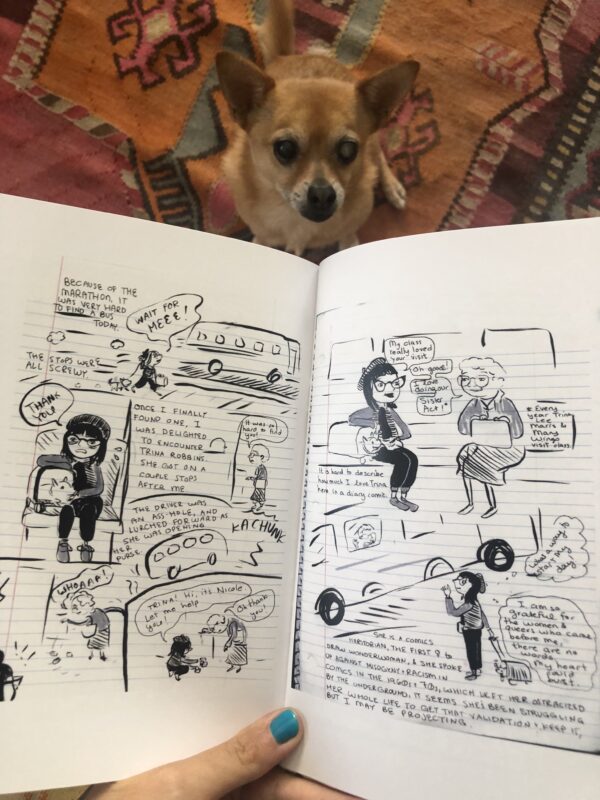 BECAUSE OF THE
MARATHON, IT
WAS VERY HARD
TO FIND A BUS
TODAY.
WAIT FOR
MEEE!
THE STOPS WERE
ALL SCREWY.
THANK
YOU!
ONCE I FINALLY
FOUND ONE, I
WAS DELIGHTED
TO ENCOUNTER
TRINA ROBBINS.
SHE GOT ON A
COUPLE STOPS
AFTER ME
It was so
hard to find
you!
THE DRIVER WAS
AN ASS-HOLE, AND
LURCHED FORWARD AS
SHE WAS OPENING
HER
PURSE.
KA CHUNK
WHOAAP!
TRINA! Hi, its Nicole.
Let me help
you!
Oh thank
you!
My class
really loved
your visit
Oh good!
I love
doing our
"Sister
Act"!
* Every
year Trina
Lee
Marrs &
Mary
Wings
visit class.
It is hard to describe
how much I love Trina
here in a diary comic.
What a way to
start my
day
I am so
grateful for
the women &
queers who came
before me,
there are no
words.
My heart
could
burst.
SHE IS A COMICS
HERSTORIAN, THE FIRST ♀ to
DRAW WONDERWOMAN, & SHE SPOKE
UP AGAINST MISOGYNY & RACISM IN
COMICS IN THE 1960s & 70s, WHICH LEFT HER OSTRACIZED
BY THE UNDERGROUND. IT SEEMS SHE'S BEEN STRUGGLING
HER WHOLE LIFE TO GET THAT VALIDATION & KEEP IT,
BUT I MAY BE PROJECTING.